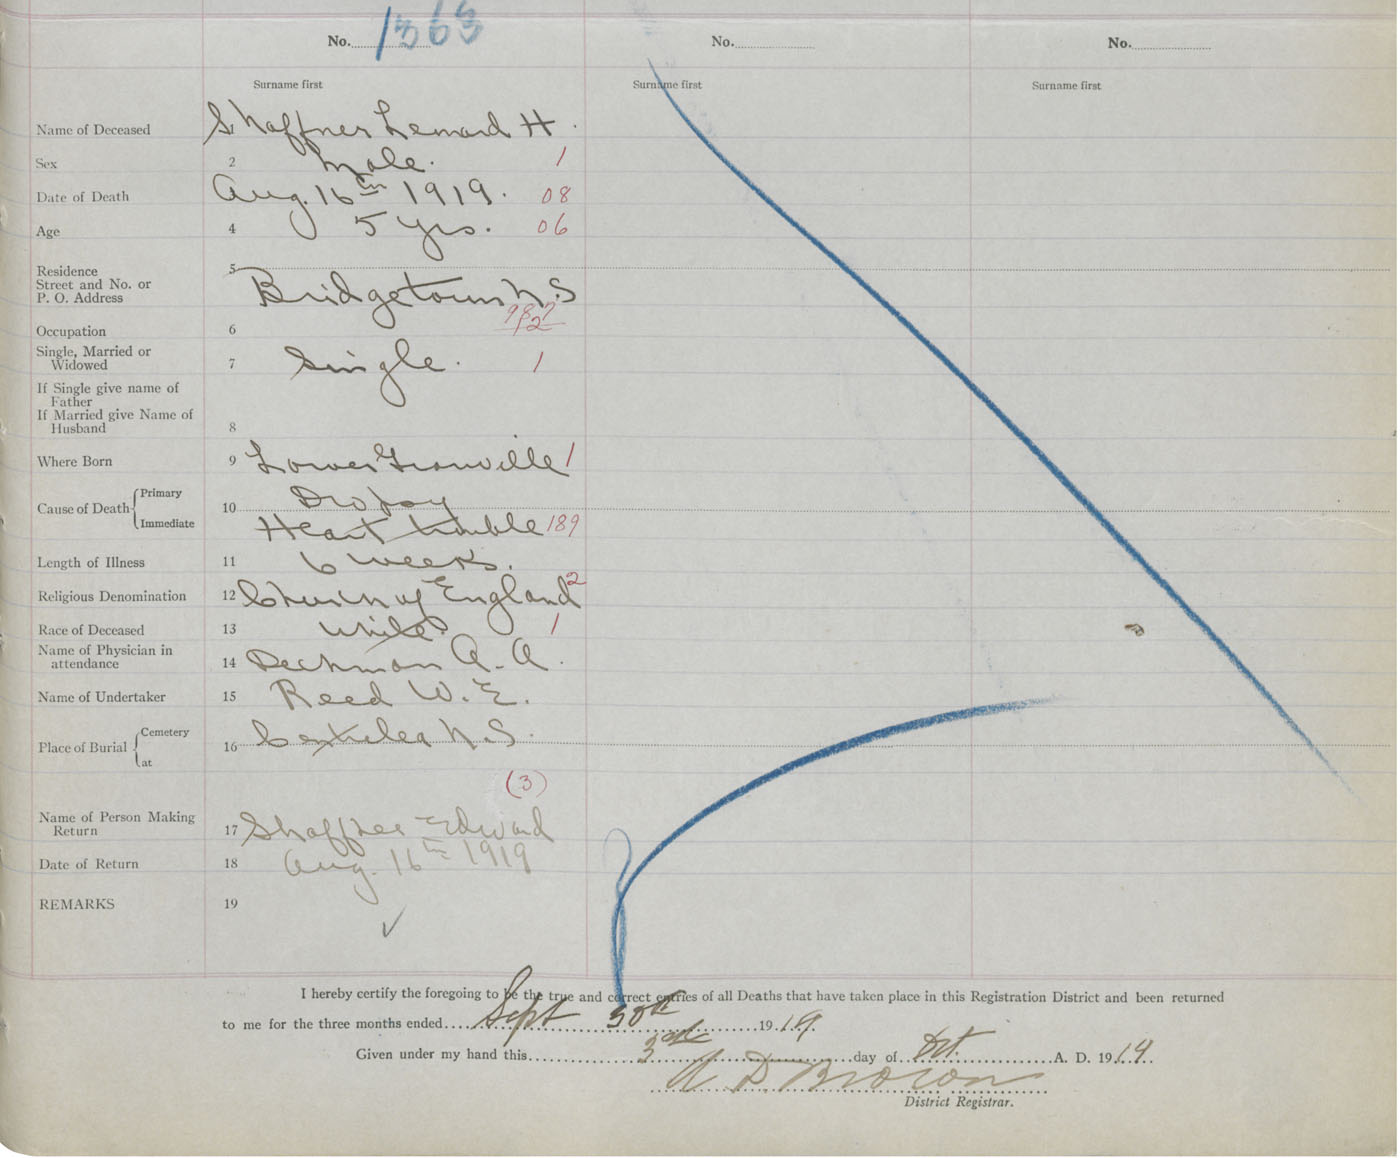 No. 1363 No. No.
Surname first Surname first Surname first
Name of Deceased Shaffner Lenard H.
Sex 2 Male. 1
Date of Death Aug. 16th 1919. 08
Age 4 5 yrs. 06
Residence 5
Street and No. or
P. O. Address Bridgetown N.S
Occupation 6
Single, Married or
Widowed 7 Single. 1
If Single give name of
Father
If Married give Name of
Husband 8
Where Born 9 Lower Granville 1
Cause of Death Primary 10 Dropsy
Immediate Heart trouble 189
Length of Illness 11 6 weeks.
Religious Denomination 12 Church of England 2
Race of Deceased 13 White 1
Name of Physician in
attendance 14 Deckman A. A.
Name of Undertaker 15 Reed W. E.
Place of Burial Cemetery 16 N.S.
at
(3)
Name of Person Making
Return 17 Shaffner Edward
Date of Return 18 Aug. 16th 1919
REMARKS 19
✓
I hereby certify the foregoing to be the true and correct entries of all Deaths that have taken place in this Registration District and been returned
to me for the three months ended Sept 30th 1919.
Given under my hand this 3rd day of Oct. A. D. 1919.
A D Brown
District Registrar.